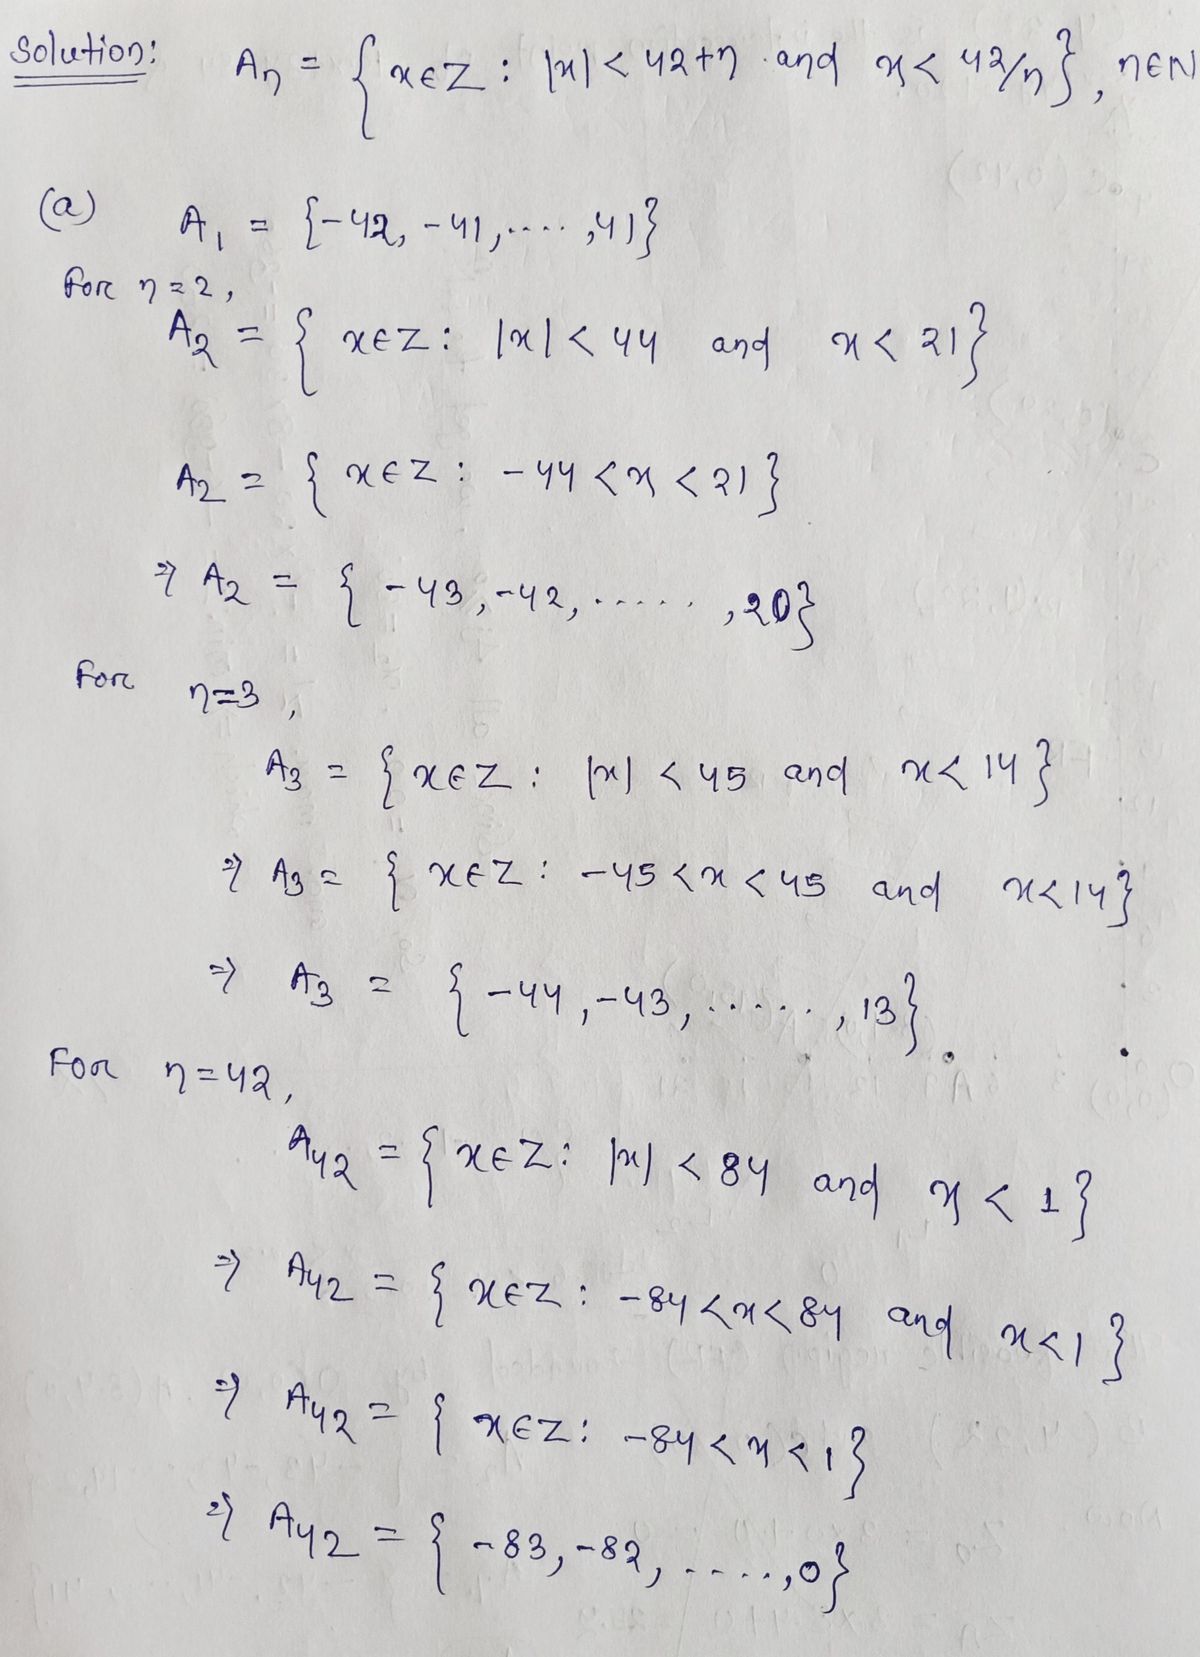 Solution: Aₙ = {x∈Z : |x| < 42+n and x < 42/n}, n∈N
(a) A₁ = {-42, -41, ...., 41}
For n=2,
A₂ = { x∈Z : |x| < 44 and x < 21}
A₂ = { x∈Z : -44 < x < 21}
⇒ A₂ = { -43, -42, ..... , 20}
For n=3,
A₃ = { x∈Z : |x| < 45 and x < 14}
⇒ A₃ = { x∈Z : -45 < x < 45 and x < 14}
⇒ A₃ = { -44, -43, ..... , 13}.
For n=42,
A₄₂ = { x∈Z : |x| < 84 and x < 1}
⇒ A₄₂ = { x∈Z : -84 < x < 84 and x < 1}
⇒ A₄₂ = { x∈Z : -84 < x < 1}
⇒ A₄₂ = { -83, -82, ...., 0}